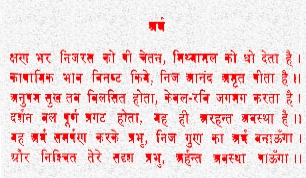 अर्घ
क्षण भर निजरस को पी चेतन, मिथ्यामल को धो देता है ।
काषायिक भाव विनष्ट किये, निज आनंद अमृत पीता है ।।
अनुपम सुख तब विलसित होता, केवल-रवि जगमग करता है ।
दर्शन बल पूर्ण प्रगट होता, यह ही अरहन्त अवस्था है ।।
यह अर्घ समर्पण करके प्रभु, निज गुण का अर्घ बनाऊँगा ।
और निश्चित तेरे सदृश प्रभु, अर्हन्त अवस्था पाऊँगा ।।